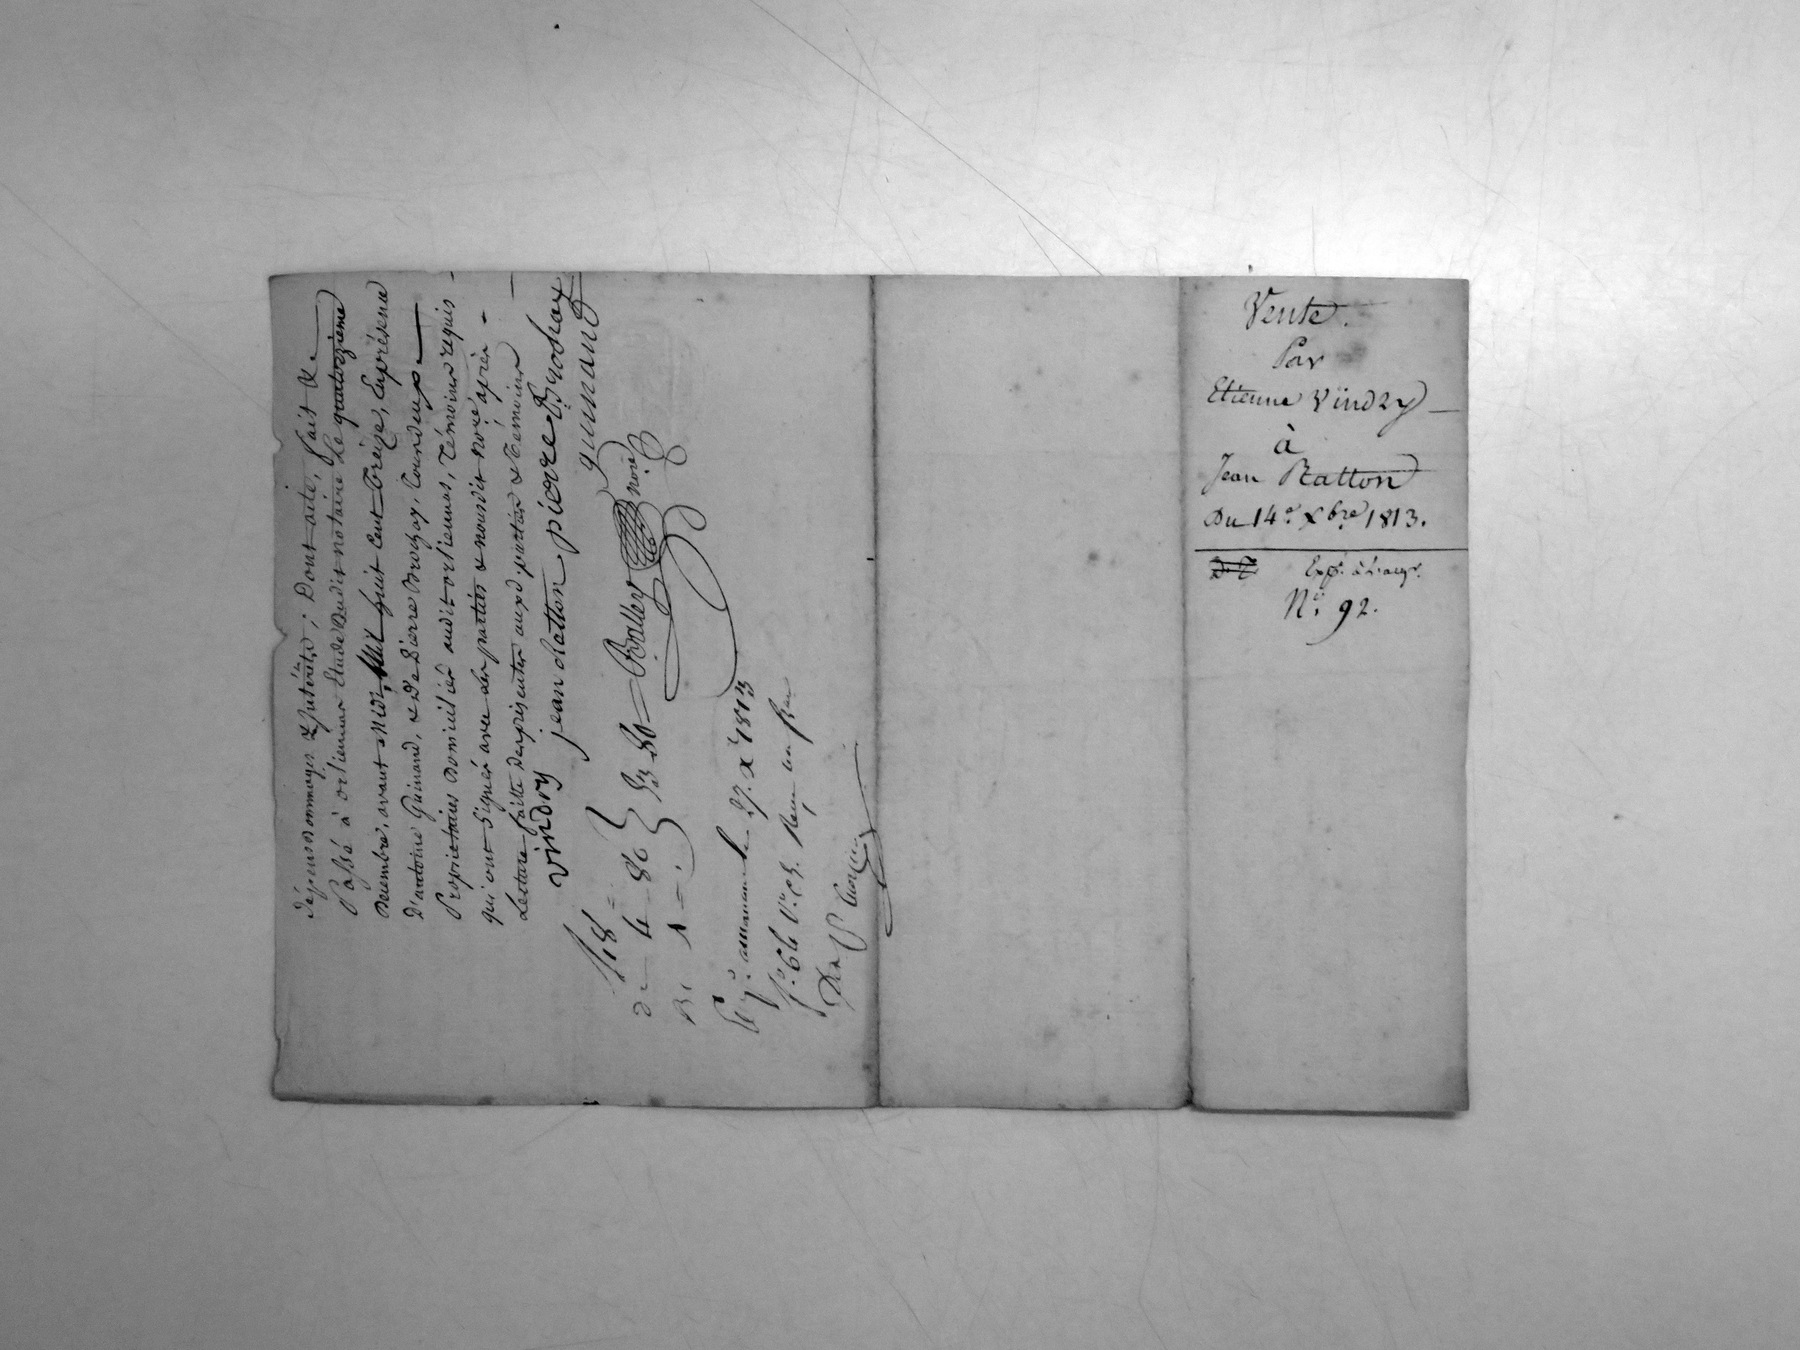 dépens dommages & Intérêts; Dont acte, fait &a
Passé à orliennas Etude dudit notaire Le quatorzième
Décembre, avant Midi, Mil huit Cent Treize, En présence
D'antoine Guinand, & De Pierre Brochay, Courdeux
Propriétaires Domiciliés audit orliennas, Témoins requis
qui ont Signés avec les parties & nousdit no.re après
Lecture faite des présentes auxd. parties & Témoins
vindry jean Ratton pierre Brochay
guinand
118 =
D. 4 - 80
R. 1 -
Balley no.re
1813
f.o 66 V.o C. 5. Reçu un franc
Vente.
Par
Etienne Vindry
à
Jean Ratton
Du 14.e Xbre 1813.
N.o 92.